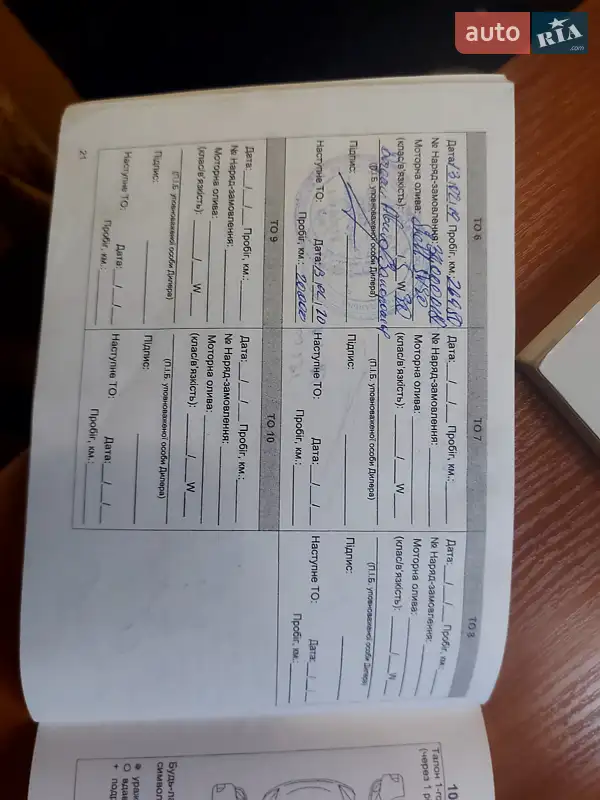 auto
RIA
.com
ТО 6
Дата: 13.02.19 Пробіг, км.:
№ Наряд-замовлення:
Моторна олива: Shell 5W30
(клас/в'язкість): / 5 W 30
(П.І.Б. уповноваженої особи Дилера)
Підпис:
Наступне ТО: Дата: 13 / 02 / 20
Пробіг, км.:
ТО 7
Дата: / / Пробіг, км.:
№ Наряд-замовлення:
Моторна олива:
(клас/в'язкість): / W
(П.І.Б. уповноваженої особи Дилера)
Підпис:
Наступне ТО: Дата: / /
Пробіг, км.:
ТО 8
Дата: / / Пробіг, км.:
№ Наряд-замовлення:
Моторна олива:
(клас/в'язкість): / W
(П.І.Б. уповноваженої особи Дилера)
Підпис:
Наступне ТО: Дата: / /
Пробіг, км.:
ТО 9
Дата: / / Пробіг, км.:
№ Наряд-замовлення:
Моторна олива:
(клас/в'язкість): / W
(П.І.Б. уповноваженої особи Дилера)
Підпис:
Наступне ТО: Дата: / /
Пробіг, км.:
ТО 10
Дата: / / Пробіг, км.:
№ Наряд-замовлення:
Моторна олива:
(клас/в'язкість): / W
(П.І.Б. уповноваженої особи Дилера)
Підпис:
Наступне ТО: Дата: / /
Пробіг, км.:
21
10
Талон 1-го
(через 1 р